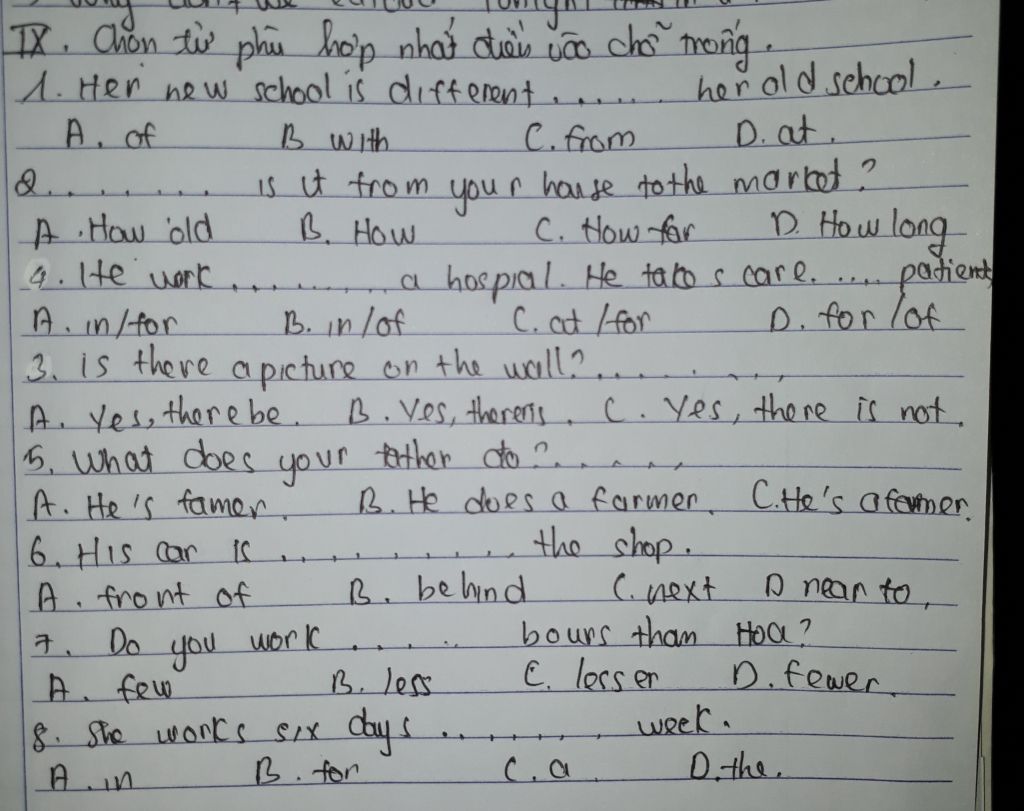 IX. Chọn từ phù hợp nhất điền vào chỗ trống.
1. Her new school is different ...... her old school.
A. of B with C. from D. at.
2. ........ is it from your house to the market?
A. How old B. How C. How far D. How long
4. He work ......... a hospial. He takes care ..... patients
A. in/for B. in/of C. at/for D. for/of
3. is there a picture on the wall? ........
A. Yes, there be. B. Yes, thereis. C. Yes, there is not.
5. What does your father do? ......
A. He's famer. B. He does a farmer. C. He's a farmer.
6. His car is .......... the shop.
A. front of B. behind C. next D near to,
7. Do you work ...... bours than Hoa?
A. few B. less C. lesser D. fewer.
8. She works six days ....... week.
A. in B. for C. a D. the.